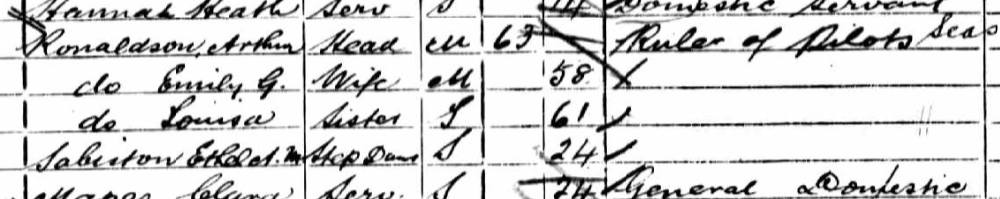 Hannah Heath Serv S 14 Domestic Servant
Ronaldson, Arthur Head M 63 Ruler of Pilots Seas
do Emily G. Wife M 58
do Louisa Sister S 61
Sabiston Ethel A. M Step Daur S 24
Clara Serv. S 24 General Domestic